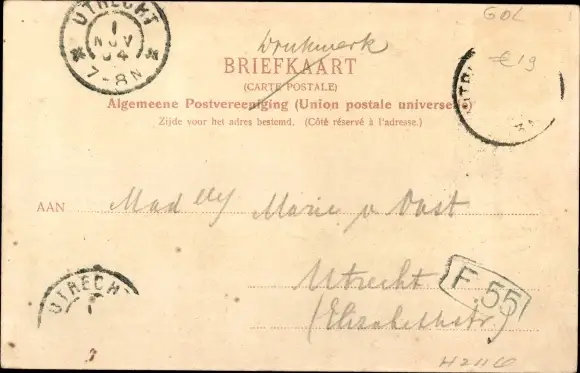 UTRECHT
1
NOV
04
7-8N
Drukwerk
GDL
€19
BRIEFKAART
(CARTE POSTALE)
Algemeene Postvereeniging (Union postale universelle)
Zijde voor het adres bestemd. (Côté réservé à l'adresse.)
UTR
AAN Mad Marie v Oast
Utrecht
(Elisabethstr.)
F.55
UTRECHT
1